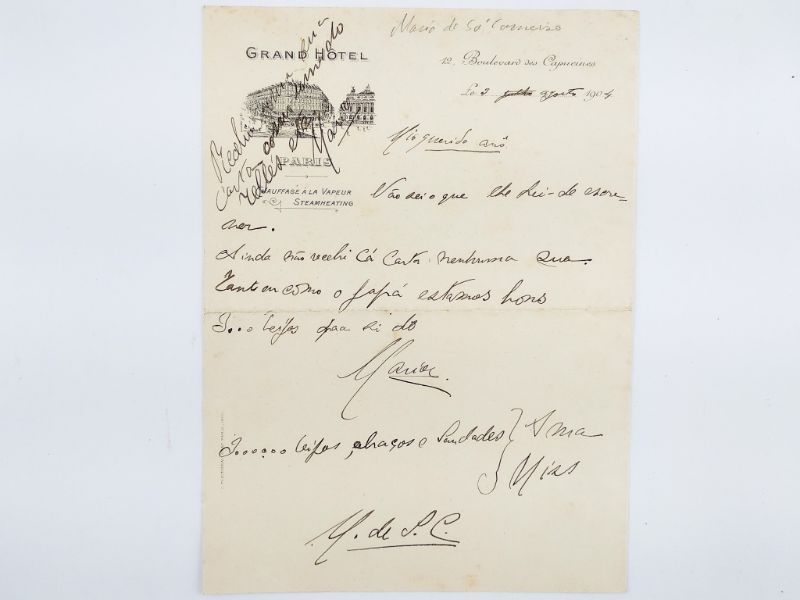 Mario de Sá Carneiro
GRAND HÔTEL
12, Boulevard des Capucines
Le 2 agosto 1904
PARIS
CHAUFFAGE À LA VAPEUR
STEAMHEATING
Meu querido avô
Não sei o que lhe hei-de escre-
ver.
Ainda não recebi cá carta nenhuma sua.
Tanto eu como o Papá estamos bons
1...0 beijos para si do
Mario.
1.000000 beijos, abraços e saudades
Ama
Miss
M. de S. C.
Recebi
carta
Mario